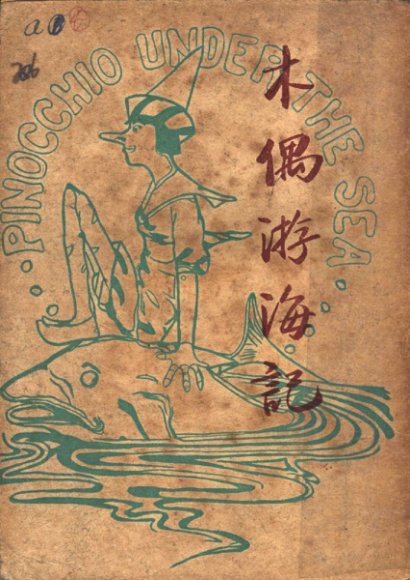 PINOCCHIO UNDER THE SEA
木偶游海記